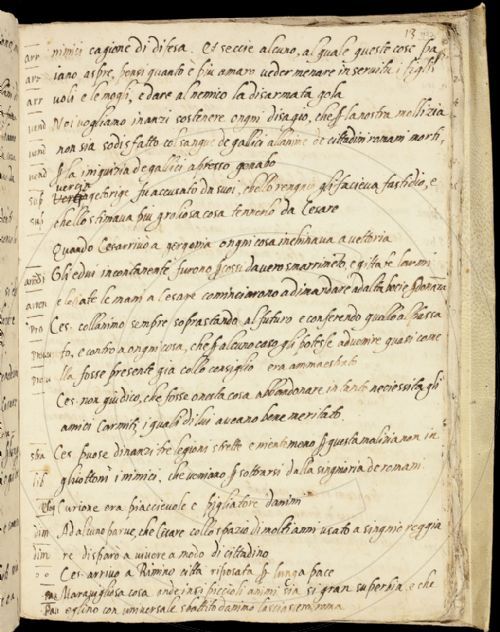 13
arr nimici cagione di difesa. Et seccie alcuno, al quale queste cose pa
arr iano aspre, pensi quanto è piu amaro veder menare in servitu i figli
arr voli e le mogli, e dare al nemico la disarmata gola
vend Noi vogliamo inanzi sostenere ongni disagio, che la nostra malizia
vend non sia sodisfatto col sangue de gallici all anime de cittadini romani morti,
vend la iniguria de gallici apresso genabo
sup vergingetorige fu accusato da suoi, chello rengno gli facieva fastidio, e
sup chello stimava piu groliosa cosa tennerlo da Cesare
Quando Cesar rivo a gergonia ongni cosa inchinava a vettoria
Gli edui incontanente furono percossi da vero smarrimeto, e gittate l armi
e levate le mani a Cesare cominciorono a dimandare ad alta bocie perdonanza
Pro Ces. coll animo sempre soprastando al futuro e conferendo quello al passa
to, e contro a ongni cosa, che alcuno caso gli potesse advenire quasi come
lla fosse presente gia collo consiglio era ammaestrato
Ces. non giudico, che fosse onesta cosa abbandonare in tanta neciessita gli
amici Carniti, i quali di lui aveano bene meritato
stra Ces. puose dinanzi tre legioni strette e nientimeno questa malizia non in
ghiottoni i nimici, che veniano sottrarsi dalla singnoria de romani.
Curione era piaccievole e pigliatore danimi
dim Ad alcuno parve, che Cesare collo spazio di molti anni usato a singnio reggia
dim re disparò a vivere a modo di cittadino
Ces. arrivo a Rimino città riposata lunga pace
Maravigliosa cosa onde in si piccioli animi sia si gran superbia e che
eglino con universale sbottito d animo lasciassero roma.